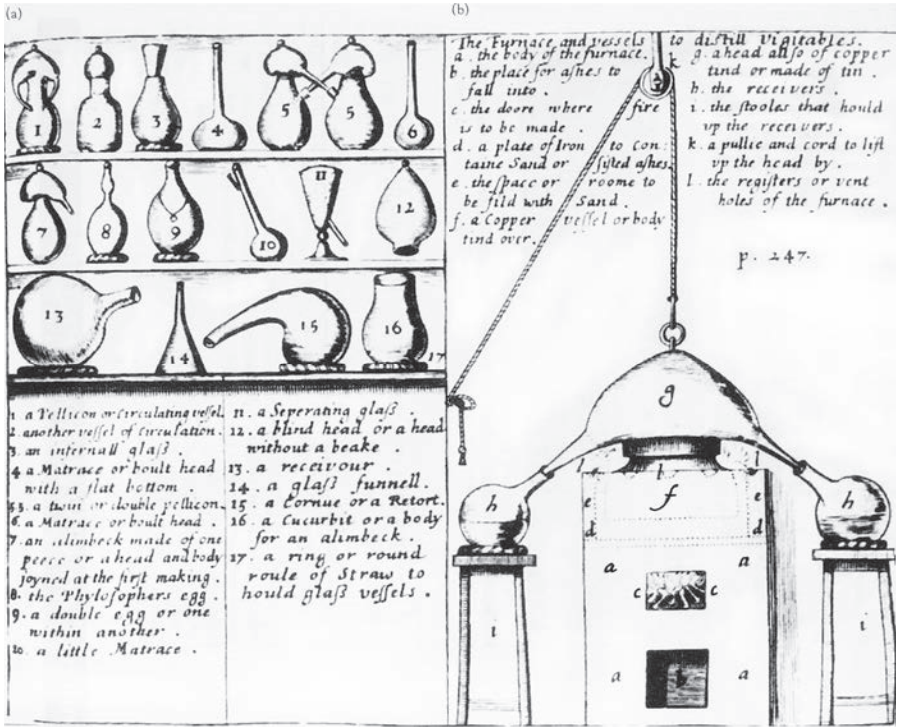 (a)
1
2
3
4
5
5
6
7
8
9
10
11
12
13
14
15
16
17
1 a Pellicon or Circulating veſſel.
2. another veſſel of Circulation.
3. an infernall glaſs
4 a Matrace or boult head
with a flat bottom .
5 5. a twin or double pellicon.
6. a Matrace or boult head .
7. an alimbeck made of one
peece or a head and body
joyned at the firſt making .
8. the Phyloſophers egg .
9. a double egg or one
within another .
10. a little Matrace .
11. a Seperating glaſs .
12. a blind head or a head
without a beake .
13. a receivour .
14. a glaſs funnell .
15. a Cornue or a Retort.
16. a Cucurbit or a body
for an alimbeck .
17. a ring or round
roule of Straw to
hould glaſs veſſels .
(b)
The Furnace and veſſels to diſtill Vigitables.
a . the body of the furnace .
b . the place for aſhes to
fall into .
c . the doore where fire
is to be made .
d . a plate of Iron to Con:
taine Sand or ſifted aſhes
e . the ſpace or roome to
be fild with Sand .
f . a Copper veſſel or body
tind over .
g . a head allſo of copper
tind or made of tin .
h . the receivers .
i . the ſtooles that hould
up the receivers .
k . a pullie and cord to lift
up the head by .
l . the regiſters or vent
holes of the furnace .
p . 247 .
k
g
l
b
l
h
h
e
f
e
d
d
a
a
c
c
i
i
a
b
a